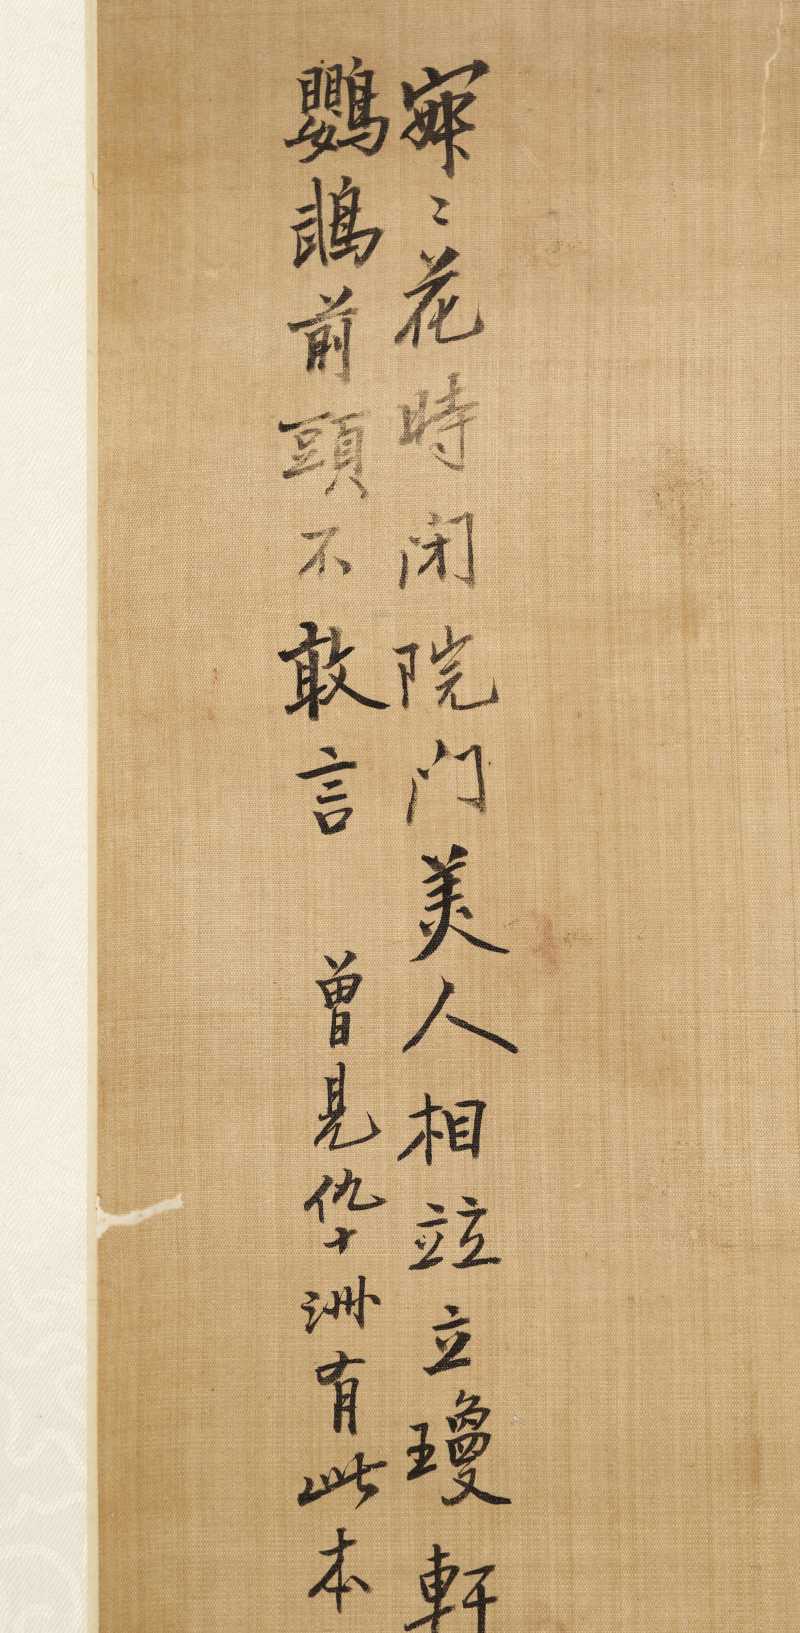 寂〻花時閉院門美人相竝立瓊軒
鸚鵡前頭不敢言 曾見仇十洲有此本